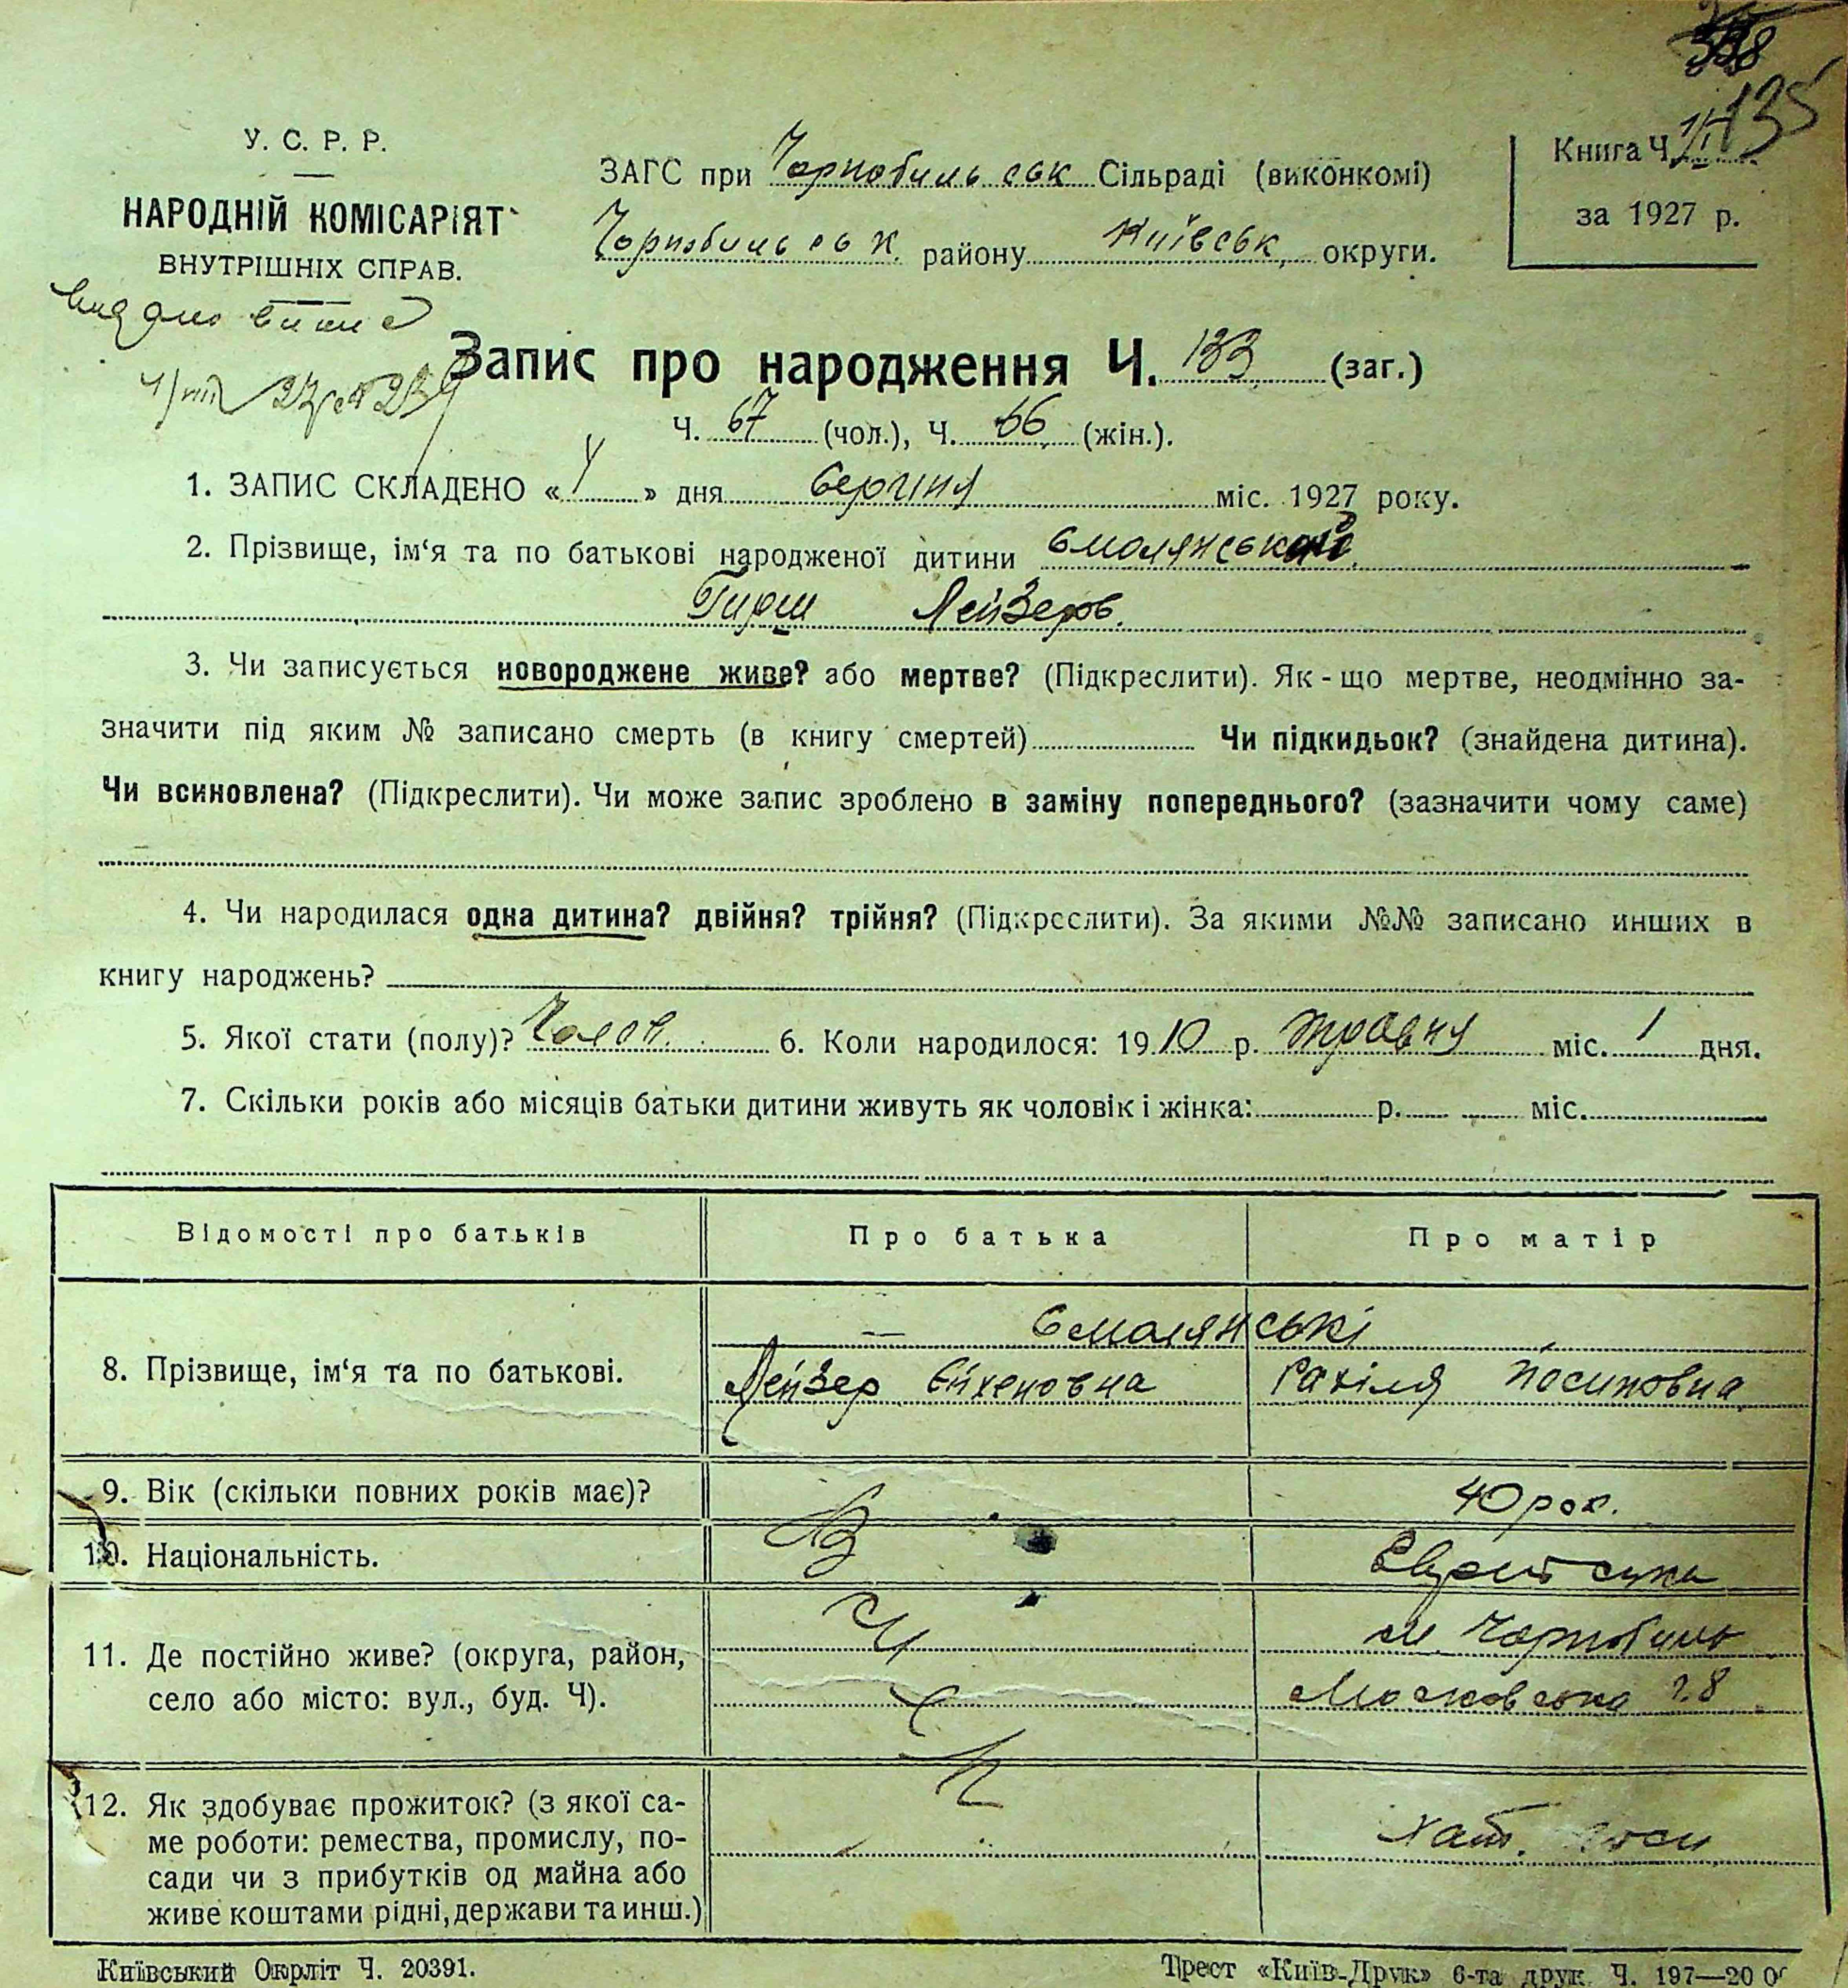 135
У. С. Р. Р.
НАРОДНІЙ КОМІСАРІЯТ
ВНУТРІШНІХ СПРАВ.
ЗАГС при Чорнобильськ Сільраді (виконкомі)
Чорнобильськ. району Київськ. округи.
Книга Ч.
за 1927 р.
Запис про народження Ч. 133 (заг.)
Ч. 67 (чол.), Ч. 66 (жін.).
1. ЗАПИС СКЛАДЕНО « » дня Серпня міс. 1927 року.
2. Прізвище, ім‘я та по батькові народженої дитини Смолянський
Гирш Лейзеров.
3. Чи записується новороджене живе? або мертве? (Підкреслити). Як-що мертве, неодмінно за-
значити під яким № записано смерть (в книгу смертей) Чи підкидьок? (знайдена дитина).
Чи всиновлена? (Підкреслити). Чи може запис зроблено в заміну попереднього? (зазначити чому саме)
4. Чи народилася одна дитина? двійня? трійня? (Підкреслити). За якими №№ записано инших в
книгу народжень?
5. Якої стати (полу)? Чолов. 6. Коли народилося: 1910 р. травня міс. 1 дня.
7. Скільки років або місяців батьки дитини живуть як чоловік і жінка: р. міс.
Відомості про батьків Про батька Про матір
Смолянські
8. Прізвище, ім‘я та по батькові. Лейзер Єйхеновна Рахіля Йосиповна
9. Вік (скільки повних років має)? 40 рок.
10. Національність. Єврейська
11. Де постійно живе? (округа, район, м. Чорнобиль
село або місто: вул., буд. Ч). Московська 8
12. Як здобуває прожиток? (з якої са-
ме роботи: ремества, промислу, по- Хат.
сади чи з прибутків од майна або
живе коштами рідні, держави та инш.)
Київський Окрліт Ч. 20391.
Трест «Київ-Друк» 6-та друк. Ч. 197—20 0